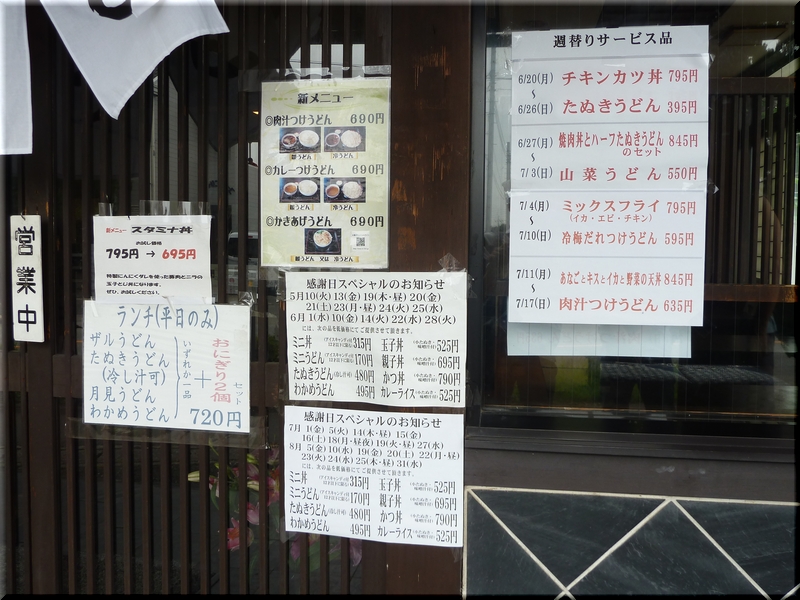 営業中
新メニュー スタミナ丼
お試し価格
795円 → 695円
特製にんにくダレを使った豚肉とニラの
玉子とじ丼になります。
ぜひ、お試しください。
ランチ(平日のみ)
ザルうどん
たぬきうどん
(冷し汁可)
月見うどん
わかめうどん
いずれか一品
+
おにぎり2個
セット
720円
新メニュー
◎肉汁つけうどん 690円
温うどん 冷うどん
◎カレーつけうどん 690円
温うどん 冷うどん
◎かきあげうどん 690円
温うどん 又は 冷うどん
感謝日スペシャルのお知らせ
5月10(火)13(金)19(木・昼)20(金)
21(土)23(月・昼)24(火)25(水)
6月1(水)10(金)14(火)22(水)28(火)
には、次の品を低価格にてご提供させて頂きます。
ミニ丼 315円
ミニうどん 170円
たぬきうどん(冷し汁可) 480円
わかめうどん 495円
玉子丼 525円
親子丼 695円
かつ丼 790円
カレーライス 525円
感謝日スペシャルのお知らせ
7月1(金)5(火)14(木・昼)15(金)
16(土)18(月・昼夜)19(火・昼)27(水)
8月5(金)10(水)19(金)20(土)22(月・昼)
23(火)24(水)25(木・昼)31(水)
には、次の品を低価格にてご提供させて頂きます。
ミニ丼 315円
ミニうどん 170円
たぬきうどん(冷し汁可) 480円
わかめうどん 495円
玉子丼 525円
親子丼 695円
かつ丼 790円
カレーライス 525円
週替りサービス品
6/20(月)
~
6/26(日)
チキンカツ丼 795円
たぬきうどん 395円
6/27(月)
~
7/3(日)
焼肉丼とハーフたぬきうどん
のセット 845円
山菜うどん 550円
7/4(月)
~
7/10(日)
ミックスフライ 795円
(イカ・エビ・チキン)
冷梅だれつけうどん 595円
7/11(月)
~
7/17(日)
あなごとキスとイカと野菜の天丼 845円
肉汁つけうどん 635円